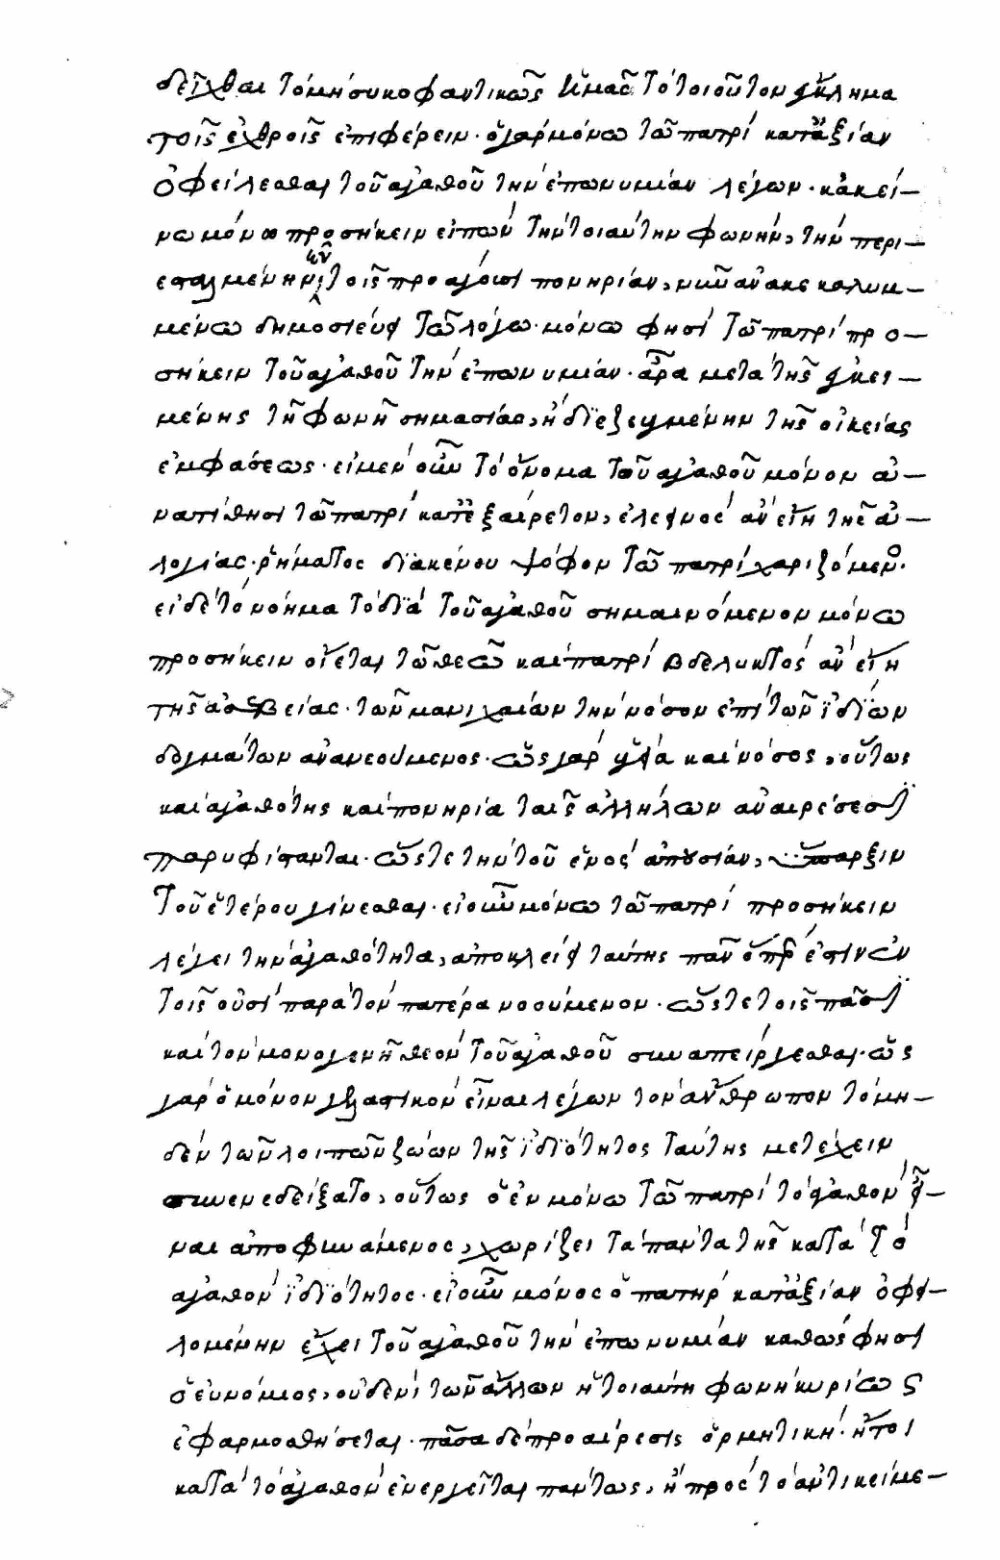 δεῖχθαι τὸ μὴ συκοφαντικῶς ἡμᾶς τὸ τοιοῦτον ἔγκλημα
τοῖς ἐχθροῖς ἐπιφέρειν· ὁ γὰρ μόνω τῶ πατρὶ κατἀξίαν
ὀφείλεσθαι τοῦ ἀγαθοῦ τὴν ἐπωνυμίαν λέγων· κἀκεί-
νω μόνω προσήκειν εἰπὼν τὴν τοιαύτην φωνήν, τὴν περι-
εσταλμένην ἐν τοῖς προάγουσι πονηρίαν, νῦν ἀνακεκαλυμ-
μένω δημοσιεύει τῶ λόγω· μόνω φησὶ τῶ πατρὶ προ-
σήκειν τοῦ ἀγαθοῦ τὴν ἐπωνυμίαν· ἆρα μετὰ τῆς ἐγκει-
μένης τῆ φωνῆ σημασίας, ἢ διεζευγμένην τῆς οἰκείας
ἐμφάσεως· εἰ μὲν οὖν τὸ ὄνομα τοῦ ἀγαθοῦ μόνον ἀ-
νατίθησι τῶ πατρὶ κατεξαίρετον, ἐλεεινὸς ἂν εἴη τῆς ἀ-
λογίας· ῥήματος διακένου ψόφον τῶ πατρὶ χαριζόμενος·
εἰ δὲ τὸ νόημα τὸ διὰ τοῦ ἀγαθοῦ σημαινόμενον μόνω
προσήκειν οἴεται τῶ θεῶ καὶ πατρὶ βδελυκτὸς ἂν εἴη
τῆς ἀσεβείας· τῶν μανιχαίων τὴν νόσον ἐπὶ τῶν ἰδίων
δογμάτων ἀνανεούμενος· ὡς γὰρ ὑγεία καὶ νόσος, οὕτως
καὶ ἀγαθότης καὶ πονηρία ταῖς ἀλλήλων ἀναιρέσεσι
παρυφίστανται· ὥστε τὴν τοῦ ἑνὸς ἀπουσίαν, ὕπαρξιν
τοῦ ἑτέρου γίνεσθαι· εἰ οὖν μόνω τῶ πατρὶ προσήκειν
λέγει τὴν ἀγαθότητα, ἀποκλείει ταύτης πᾶν ὅπερ ἐστὶν ἐν
τοῖς οὖσι παρὰ τὸν πατέρα νοούμενον· ὥστε τοῖς πᾶσι
καὶ τὸν μονογενῆ θεὸν τοῦ ἀγαθοῦ συναπείργεσθαι· ὡς
γὰρ ὁ μόνον γελαστικὸν εἶναι λέγων τὸν ἄνθρωπον τὸ μη-
δὲν τῶν λοιπῶν ζώων τῆς ἰδιότητος ταύτης μετέχειν
συνενεδείξατο, οὕτως ὁ ἐν μόνω τῶ πατρὶ τὸ ἀγαθὸν εἶ-
ναι ἀποφηνάμενος, χωρίζει τὰ πάντα τῆς κατὰ τὸ
ἀγαθὸν ἰδιότητος· εἰ οὖν μόνος ὁ πατὴρ κατἀξίαν ὀφει-
λομένην ἔχει τοῦ ἀγαθοῦ τὴν ἐπωνυμίαν καθώς φησι
ὁ εὐνόμιος, οὐδενὶ τῶν ἄλλων ἡ τοιαύτη φωνὴ κυρίως
ἐφαρμοσθήσεται· πᾶσα δὲ προαίρεσις ὁρμητική· ἤτοι
κατὰ τὸ ἀγαθὸν ἐνεργεῖται πάντως, ἢ πρὸς τὸ ἀντικείμε-